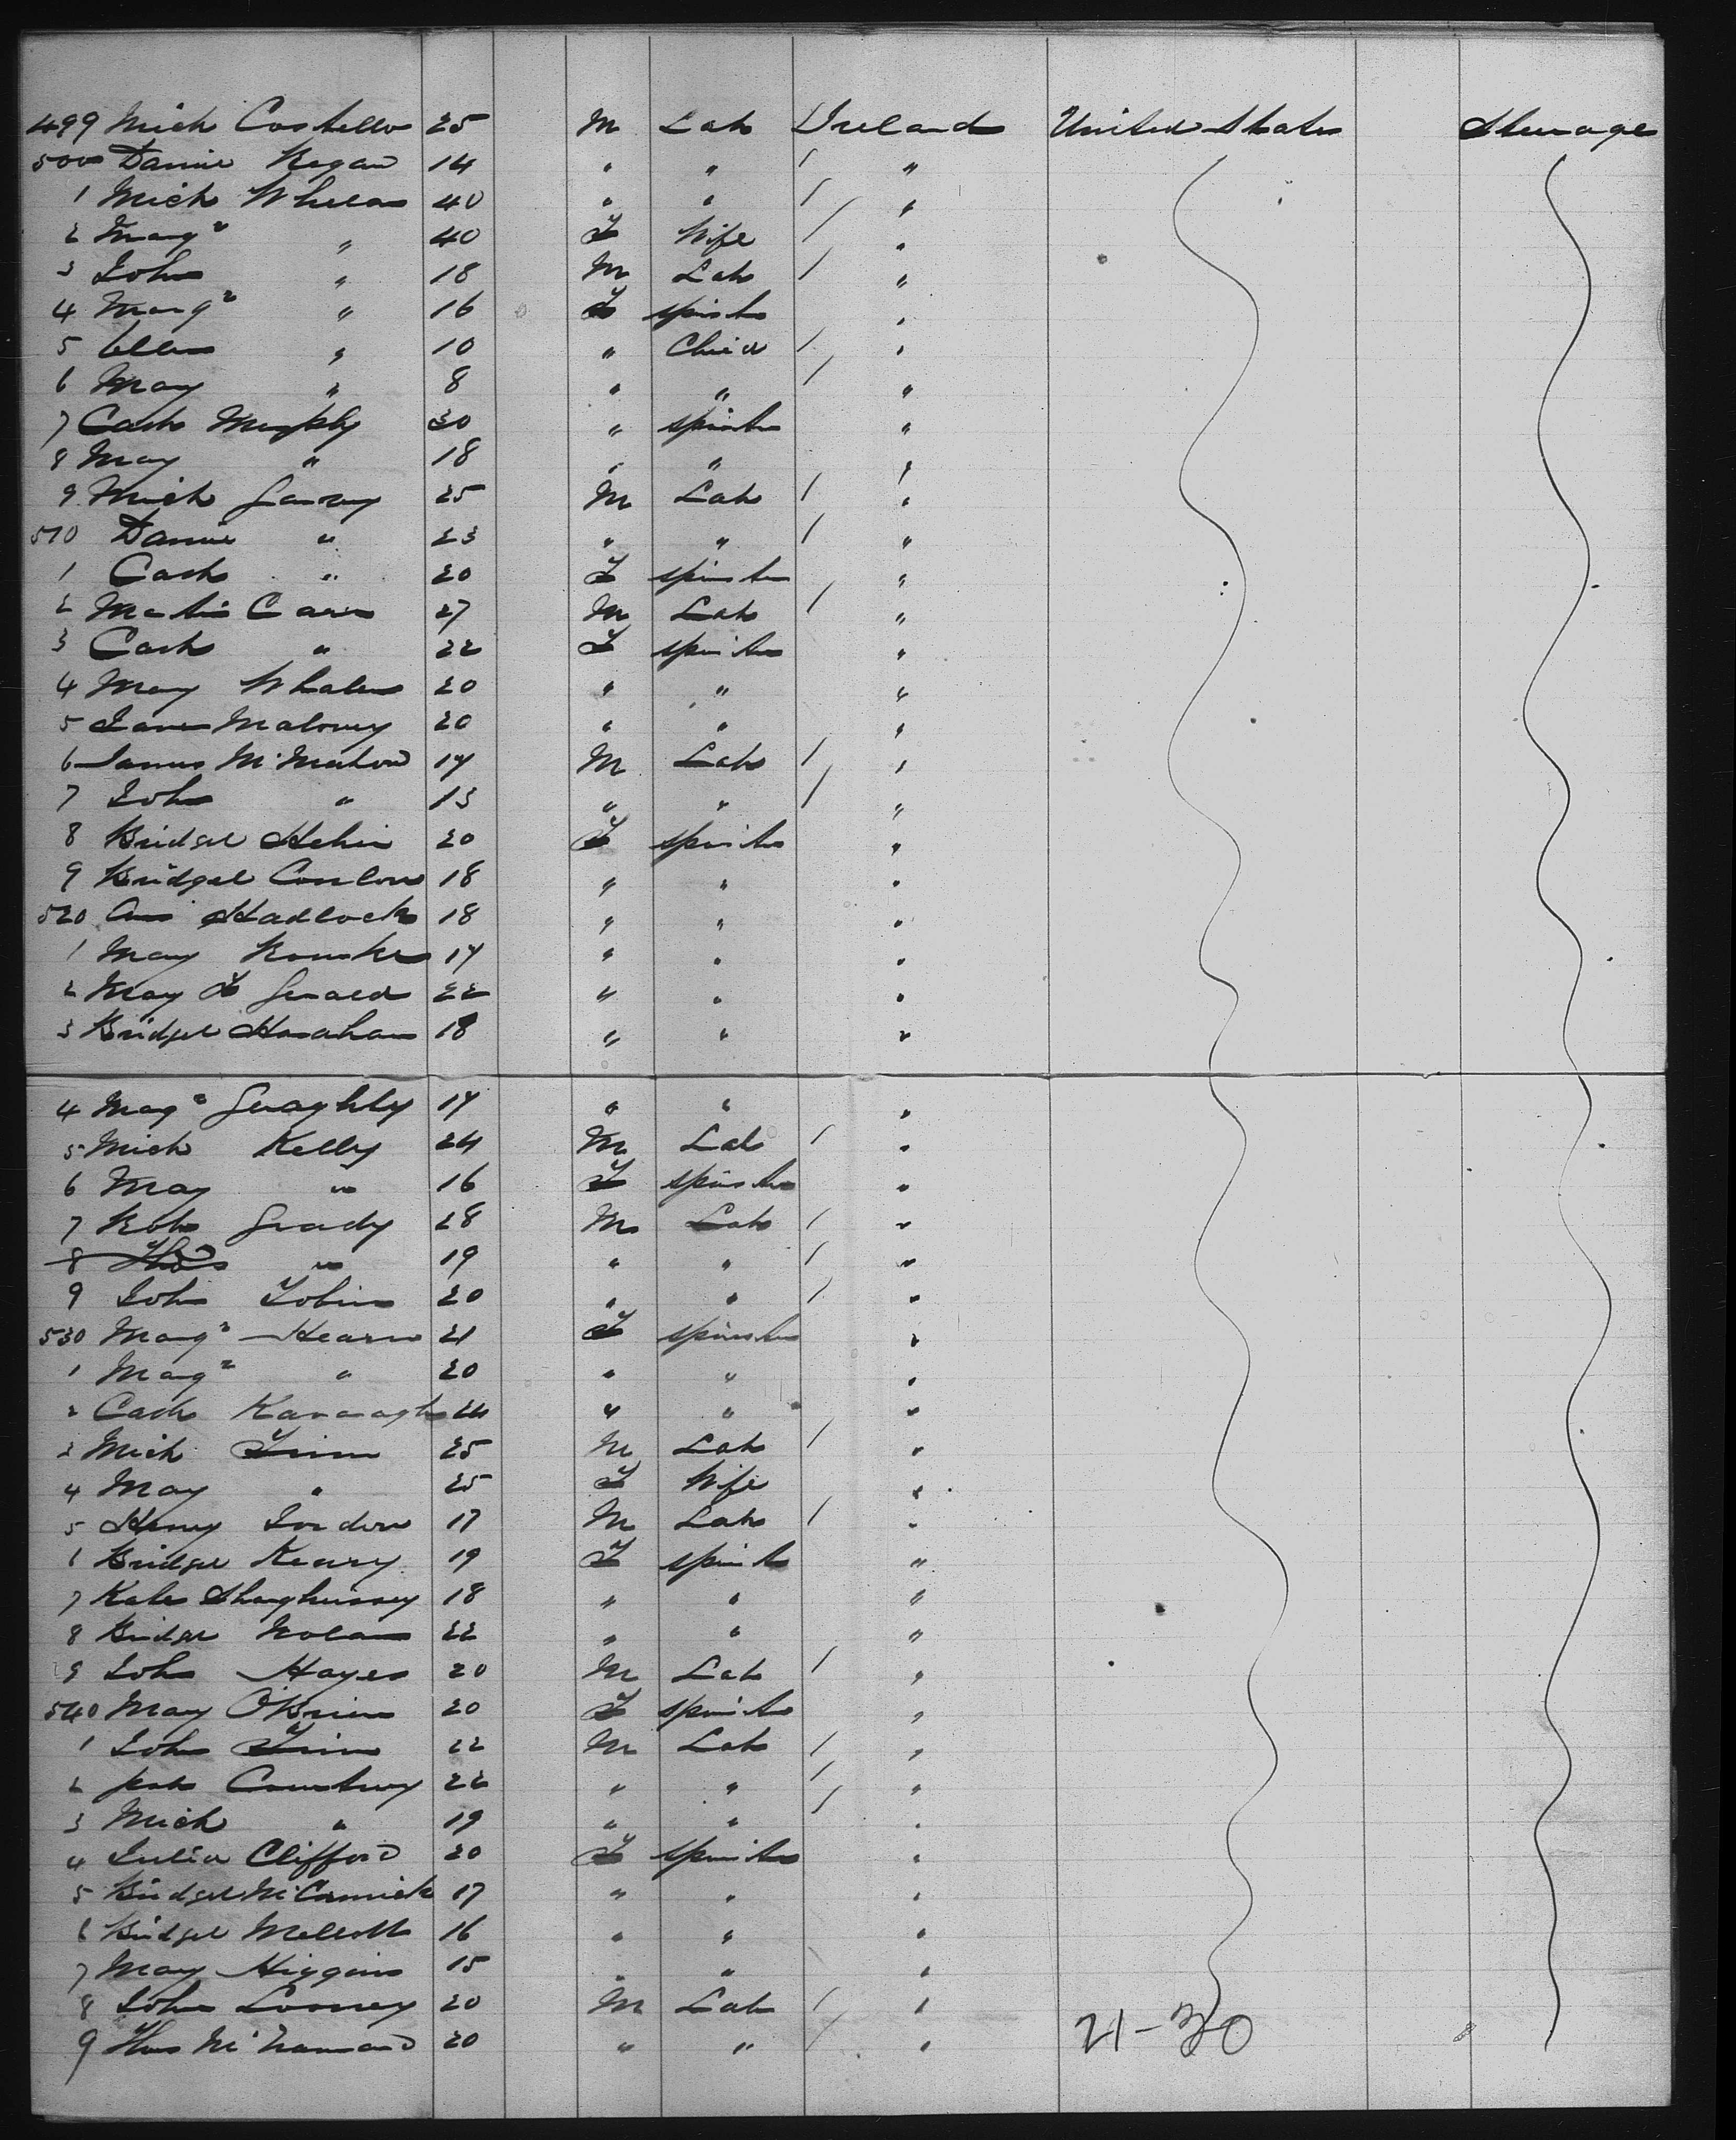 499 Mich Costello 25 M Lab Ireland United States Steerage
500 Danie Regan 14 " " / "
1 Mich Whelan 40 " " / "
2 Marg " 40 F Wife / "
3 John " 18 M Lab / "
4 Marg " 16 F spinster "
5 Ellen " 10 " Child / "
6 May " 8 " " / "
7 Cath Murphy 30 " spinster "
8 May " 18 " " "
9 Mich Garvey 25 M Lab / "
510 Danie " 23 " " / "
1 Cath " 20 F spinster "
2 Martin Carr 27 M Lab / "
3 Cath " 22 F spinster "
4 May Whalen 20 " " "
5 Jane Maloney 20 " " "
6 James McMahon 17 M Lab / "
7 John " 13 " " / "
8 Bridget 20 F spinster "
9 Bridget Conlon 18 " " "
520 Ann Hadlock 18 " " "
1 May Rourke 17 " " "
2 May F Gerald 22 " " "
3 Bridget Hanahan 18 " " "
4 Marg Geraghty 17 " " "
5 Mich Kelly 24 M Lab / "
6 May " 16 F spinster "
7 Rob Grady 28 M Lab / "
8 Thos " 19 " " / "
9 John Tobin 20 " " / "
530 Marg Hearn 21 F spinster "
1 Marg " 20 " " "
2 Cath Kavanagh 24 " " "
3 Mich Finn 25 M Lab / "
4 May " 25 F Wife "
5 Henry Jordon 17 M Lab / "
6 Bridget Keary 19 F spinster "
7 Kate Shaughnissey 18 " " "
8 Bridget Nolan 22 " " "
9 John Hayes 20 M Lab / "
540 May O'Brien 20 F spinster "
1 John Finn 22 M Lab / "
2 Pat Courtney 22 " " / "
3 Mich " 19 " " / "
4 Julia Clifford 20 F spinster "
5 Bridget McCormick 17 " " "
6 Bridget Mellott 16 " " "
7 May Higgins 15 " " "
8 John Looney 20 M Lab / "
9 Thos McNamara 20 " " / "
21-30